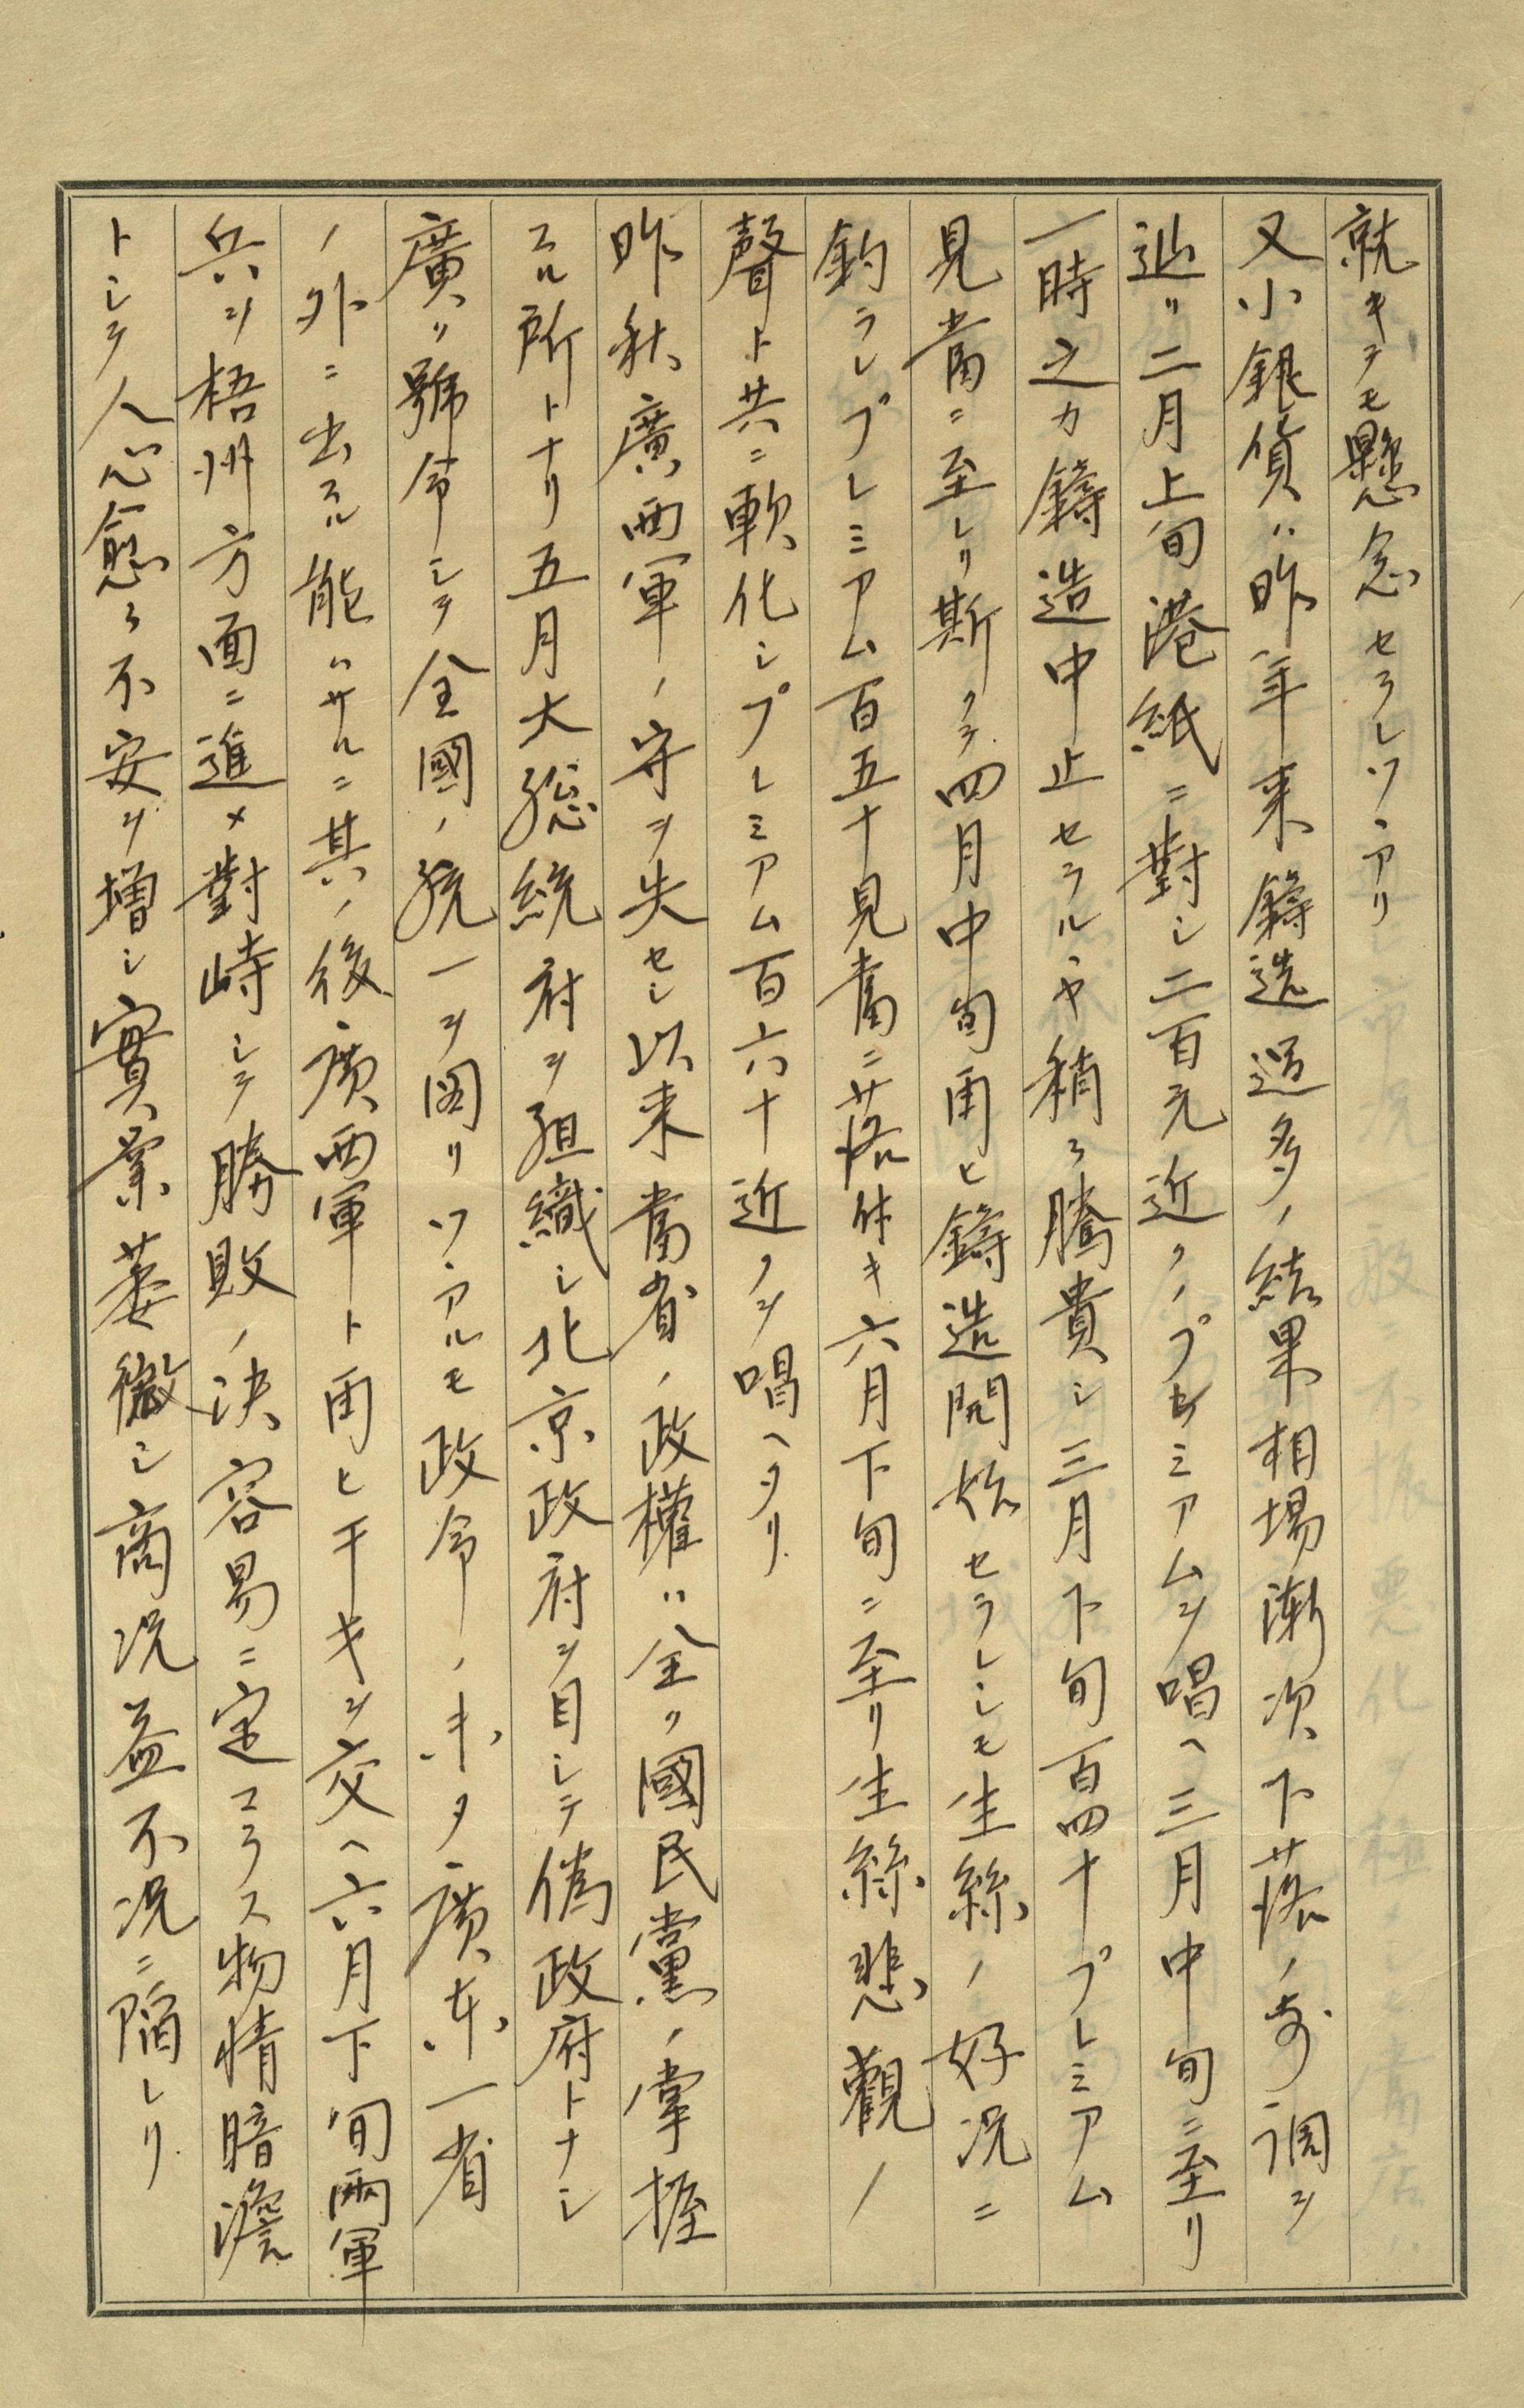 就キテモ懸念セラレツヽアリ
又小銀貨ハ昨年来鑄造過多ノ結果相場漸次下落ノ歩調ヲ
辿リ二月上旬港紙ニ對シ二百元近クノプレミアムヲ唱ヘ三月中旬ニ至リ
一時之カ鑄造中止セラルヽヤ稍々騰貴シ三月下旬百四十プレミアム
見當ニ至レリ斯クテ四月中旬再ヒ鑄造開始セラレシモ生絲ノ好況ニ
釣ラレプレミアム百五十見當ニ落付キ六月下旬ニ至リ生絲悲觀ノ
聲ト共ニ軟化シプレミアム百六十近クヲ唱ヘタリ
昨秋廣西軍ノ守ヲ失セシ以来當省ノ政權ハ全ク國民黨ノ掌握
スル所トナリ五月大総統府ヲ組織シ北京政府ヲ目シテ僞政府トナシ
廣ク號令シテ全國ノ統一ヲ図リツヽアルモ政令ノ未タ廣東一省
ノ外ニ出ル能ハサルニ其ノ後廣西軍ト再ヒ干戈ヲ交ヘ六月下旬兩軍
兵ヲ梧州方面ニ進メ對峙シテ勝敗ノ決容易ニ定マラス物情暗澹
トシテ人心愈々不安ヲ増シ實業萎微シ商況益不況ニ陥レリ